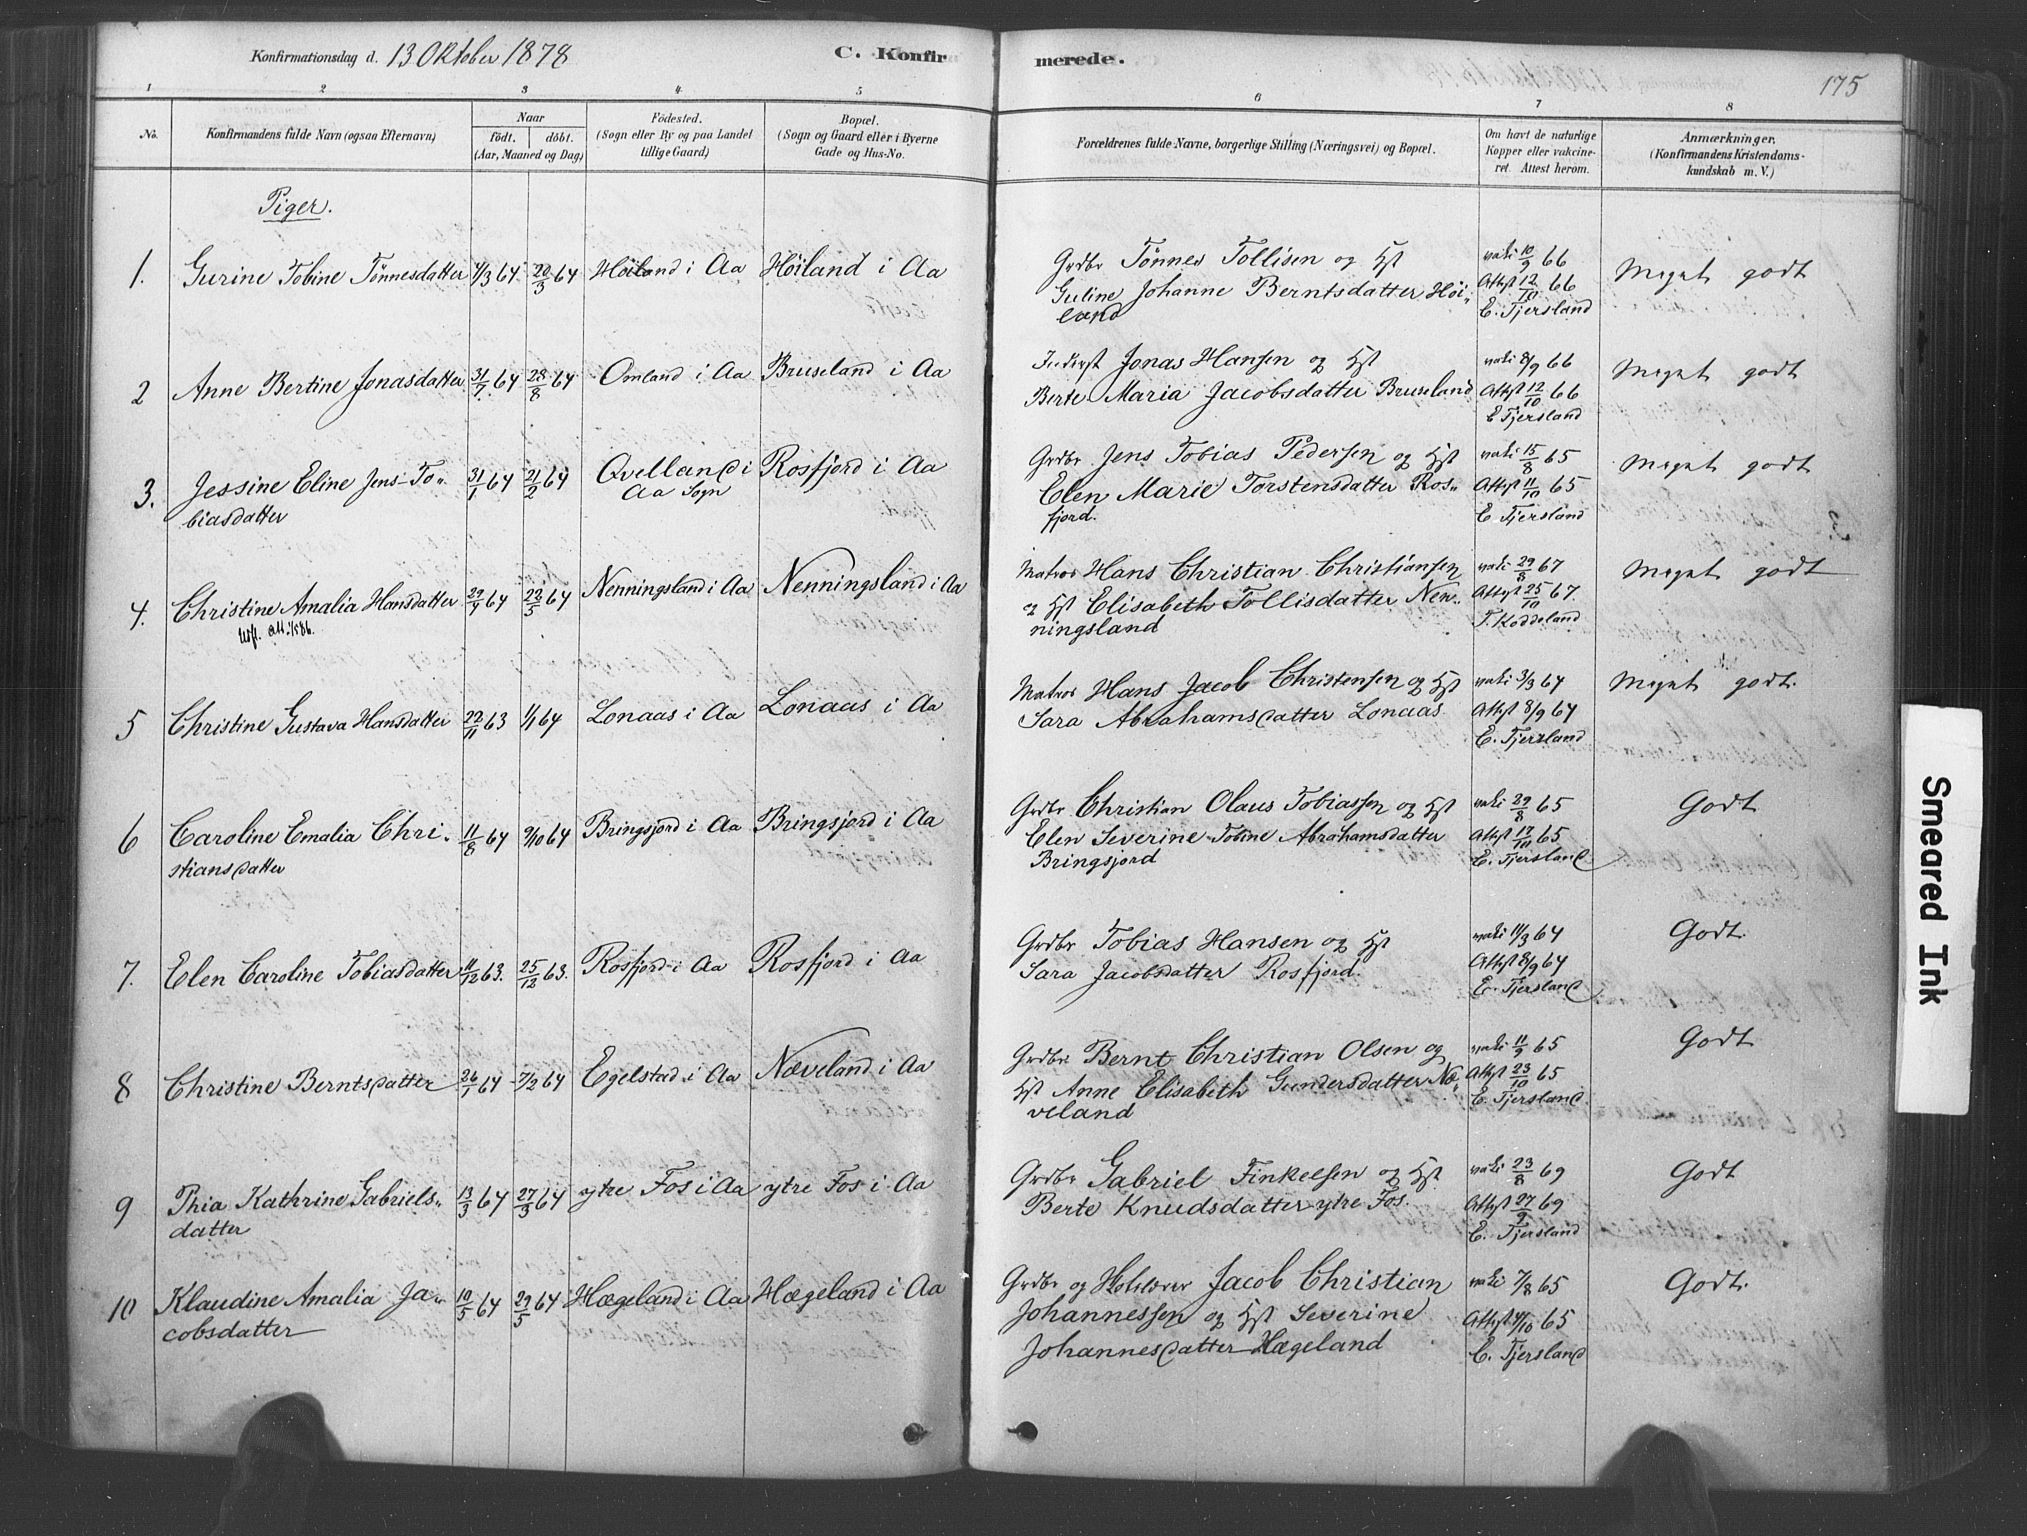 Konfirmationsdag d. 13 Oktober 1878
C. Konfirmerede.
175
1 2 3 4 5 6 7 8
No.
Konfirmandens fulde Navn (ogsaa Efternavn)
Naar
födt. döbt.
(Aar, Maaned og Dag)
Födested.
(Sogn eller By og paa Landet
tillige Gaard)
Bopæl.
(Sogn og Gaard eller i Byerne
Gade og Hus-No.
Forældrenes fulde Navne, borgerlige Stilling (Næringsvei) og Bopæl.
Om havt de naturlige
Kopper eller vakcine-
ret. Attest herom.
Anmærkninger.
(Konfirmandens Kristendoms-
kundskab m. V.)
Piger.
1. Gurine Tobine Tønnesdatter 4/3 64 20/3 64 Høiland i Aa Høiland i Aa
Grdbr Tønnes Tollisen og Hst
Guline Johanne Berntsdatter Høi-
land
vaki 10/9 66
Attest 12/10 66
E. Tjersland
Meget godt
2 Anne Bertine Jonasdatter 31/7 64 28/8 64 Omland i Aa Bruseland i Aa
Jonas Hansen og Hst
Berte Maria Jacobsdatter Bruseland
vaki 8/9 66
Attest 12/10 66
E Tjersland
Meget godt
3. Jessine Eline Jens-To-
biasdatter
31/1 64 21/2 64 Qvelland i
Aa Sogn
Rosfjord i Aa
Grdbr Jens Tobias Pedersen og Hst
Elen Marie Torstensdatter Ros-
fjord.
vaki 15/8 65
Attest 11/10 65
E. Tjersland
Meget godt
4. Christine Amalia Hansdatter 29/4 64 22/5 64 Nenningsland i Aa Nenningsland i Aa
Matros Hans Christian Christiansen
og Hst Elisabeth Tollisdatter Nen-
ningsland
vaki 29/8 67
Attest 25/10 67.
T. Koddeland
Meget godt
5 Christine Gustava Hansdatter 22/11 63 1/1 64 Lonaas i Aa Lonaas i Aa
Matros Hans Jacob Christensen og Hst
Sara Abrahamsdatter Lonaas
vaki 3/3 64
Attest 8/9 64
E. Tjersland
Meget godt.
6 Caroline Emalia Chri-
stiansdatter
11/8 64 9/10 64 Bringsjord i Aa Bringsjord i Aa
Grdbr Christian Olaus Tobiassen og Hst
Elen Severine Tobine Abrahamsdatter
Bringsjord
vaki 29/8 65
Attest 12/10 65
E. Tjersland
Godt
7. Elen Caroline Tobiasdatter 11/12 63. 25/12 63. Rosfjord i Aa Rosfjord i Aa
Grdbr Tobias Hansen og Hst
Sara Jacobsdatter Rosfjord.
vaki 11/3 64
Attest 8/9 64
E. Tjersland
Godt.
8 Christine Berntsdatter 26/1 64 7/2 64 Egelstad i Aa Næveland i Aa
Grdbr Bernt Christian Olsen og
Hst Anne Elisabeth Gundersdatter Næ-
veland
vaki 11/9 65
Attest 23/10 65
E. Tjersland
Godt
9 Thia Kathrine Gabriels-
datter
13/3 64 27/3 64 ytre Fos i Aa ytre Fos i Aa
Grdbr Gabriel Finkelsen og Hst
Berte Knudsdatter ytre Fos
vaki 23/8 69
Attest 27/9 69
E. Tjersland
Godt
10 Klaudine Amalia Ja-
cobsdatter
10/5 64 29/5 64 Hægeland i Aa Hægeland i Aa
Grdbr og Jacob Christian
Johannessen og Hst Severine
Johannesdatter Hægeland
vaki 7/8 65
Attest 11/10 65
E. Tjersland
Godt.
Smeared Ink